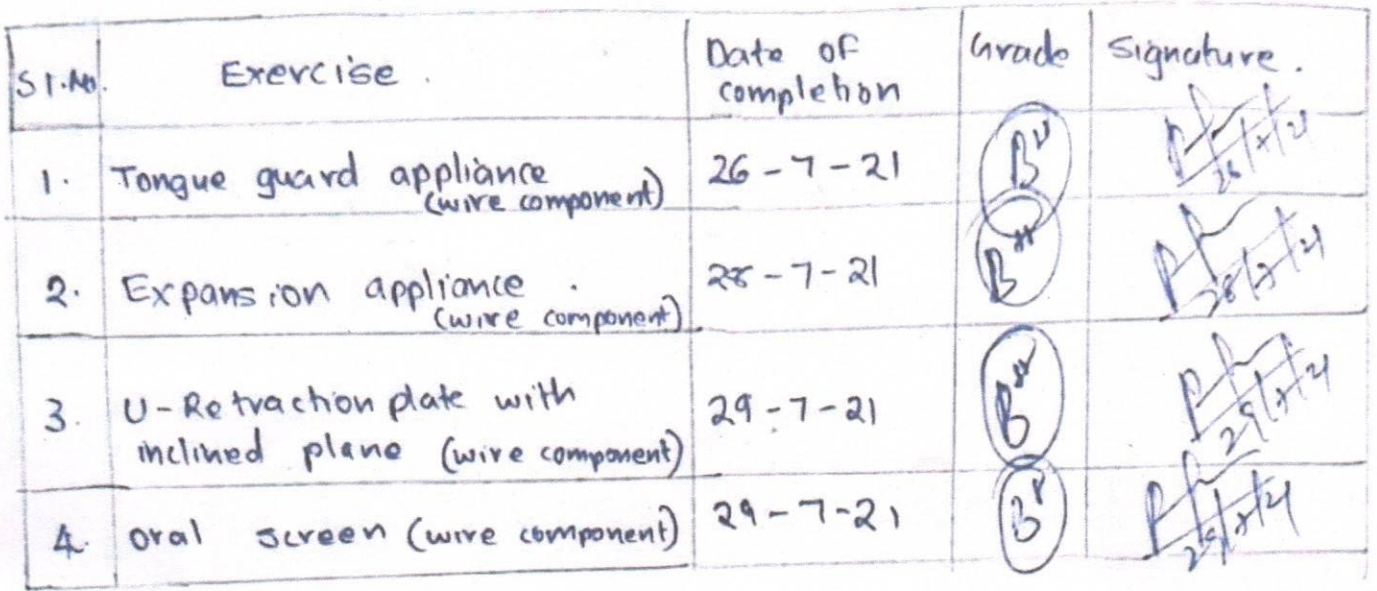 Sl.No. Exercise. Date of completion Grade Signature.
1. Tongue guard appliance (wire component) 26-7-21 B
2. Expansion appliance. (wire component) 28-7-21 B
3. U-Retraction plate with inclined plane (wire component) 29-7-21 B
4. oral screen (wire component) 29-7-21 B